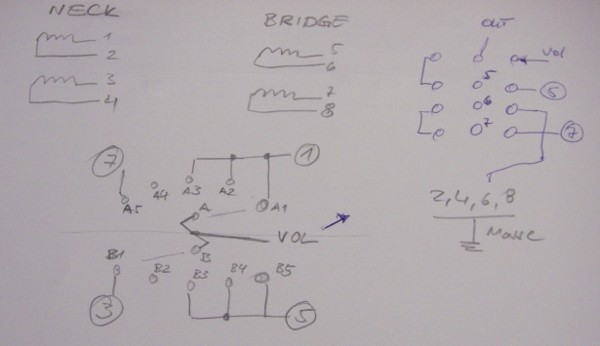 NECK
1
2
3
4
BRIDGE
5
6
7
8
OUT
VOL
5
5
6
7
7
7
1
A5 A4 A3 A2 A1
A
VOL
B
B1 B2 B3 B4 B5
3
5
2, 4, 6, 8
Masse